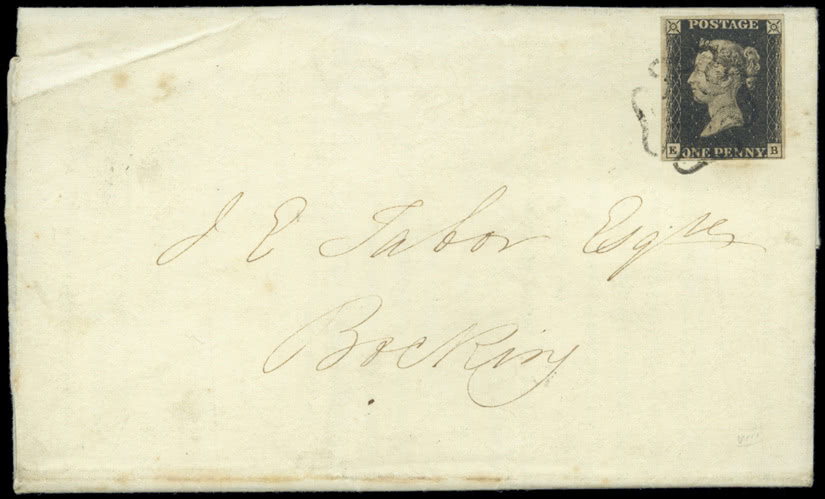 POSTAGE
E ONE PENNY. B
J E Tabor Esqre
Bocking